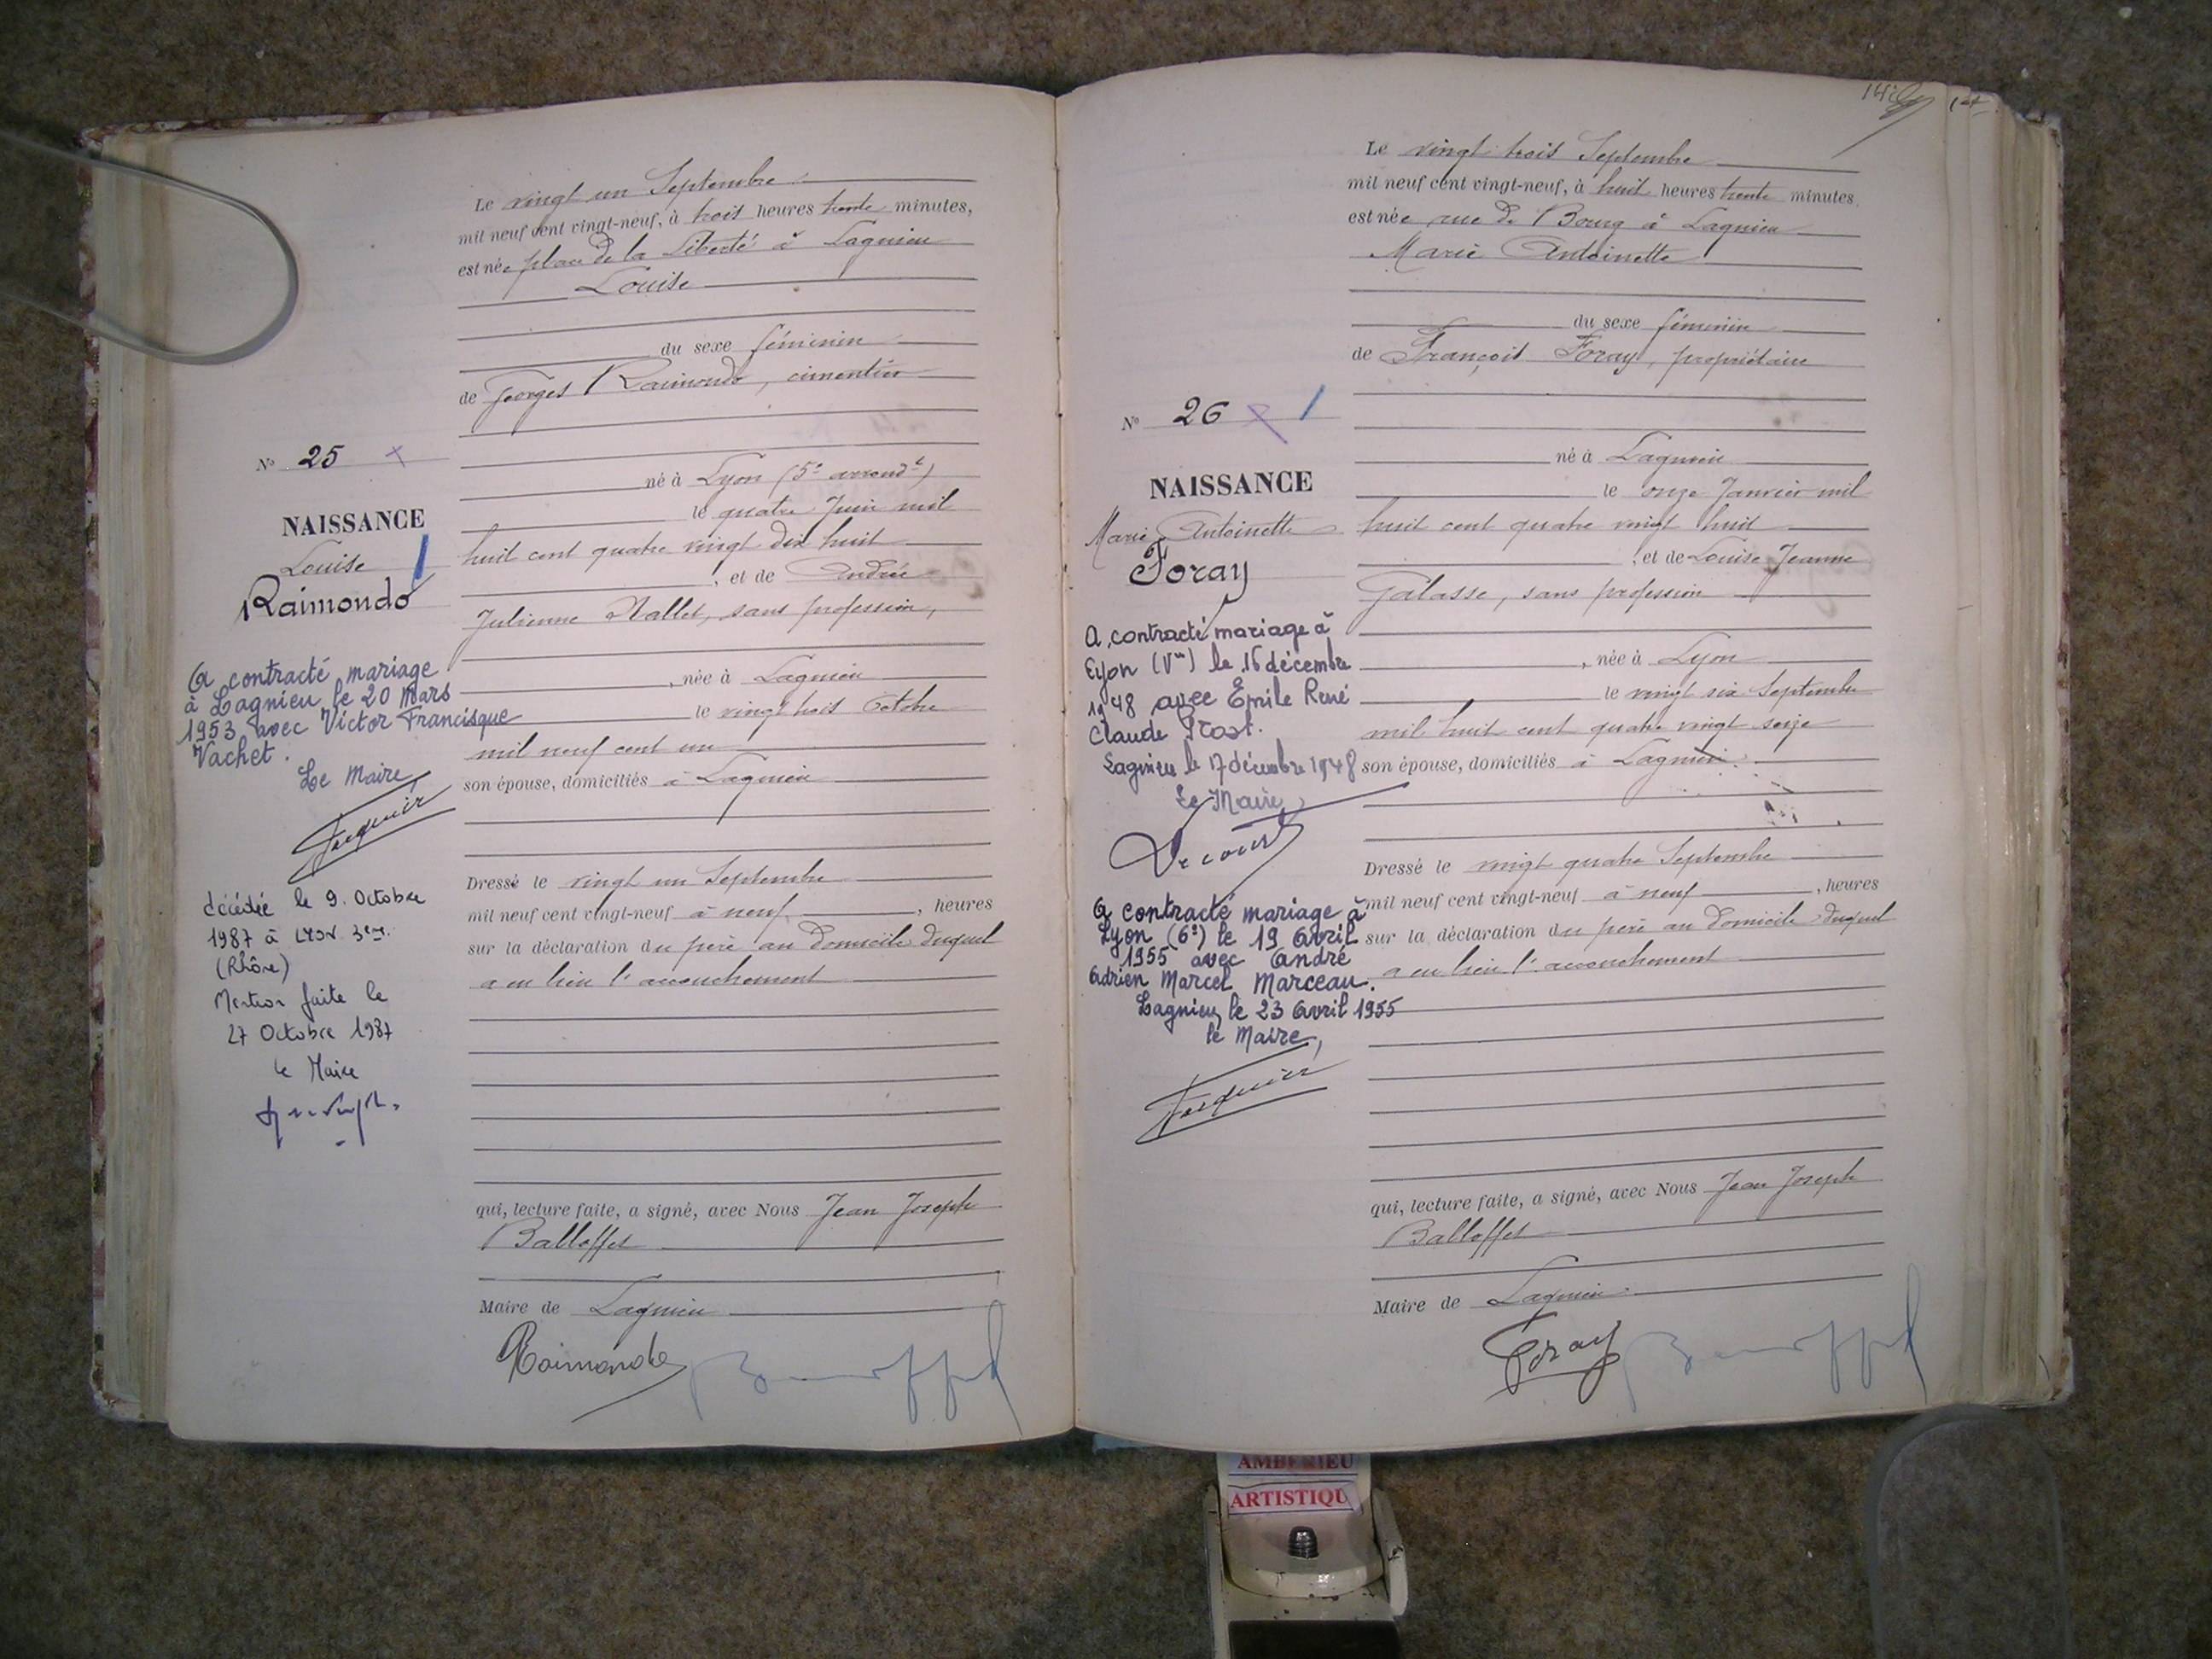 Le vingt un Septembre
mil neuf cent vingt-neuf, à trois heures trente minutes,
est née place de la Liberté à Lagnieu
Louise
du sexe féminin
de Georges Raimondo, cimentier
né à Lyon (5e arrondt)
le quatre Juin mil
huit cent quatre vingt dix huit
, et de Andrée
Julienne Mallet, sans profession,
, née à Lagnieu
le vingt trois Octobre
mil neuf cent un
son épouse, domiciliés à Lagnieu
Dressé le vingt un Septembre
mil neuf cent vingt-neuf à neuf, heures
sur la déclaration du père au domicile duquel
a eu lieu l'accouchement
qui, lecture faite, a signé, avec Nous Jean Joseph
Balloffet
Maire de Lagnieu
Raimondo
No 25
NAISSANCE
Louise
Raimondo
A contracté mariage
à Lagnieu le 20 Mars
1953 avec Victor Francisque
Vachet.
Le Maire,
décédée le 9. Octobre
1987 à LYON 3em.
(Rhône)
Mention faite le
27 Octobre 1987
le Maire
Le vingt trois Septembre
mil neuf cent vingt-neuf, à huit heures trente minutes,
est née rue de Bourg à Lagnieu
Marie Antoinette
du sexe féminin
de François Foray, propriétaire
né à Lagnieu
le onze Janvier mil
huit cent quatre vingt huit
, et de Louise Jeanne
Galasse, sans profession
, née à Lyon
le vingt six Septembre
mil huit cent quatre vingt seize
son épouse, domiciliés à Lagnieu
Dressé le vingt quatre Septembre
mil neuf cent vingt-neuf à neuf, heures
sur la déclaration du père au domicile duquel
a eu lieu l'accouchement
qui, lecture faite, a signé, avec Nous Jean Joseph
Balloffet
Maire de Lagnieu
Foray
No 26
NAISSANCE
Marie Antoinette
Foray
A contracté mariage à
Lyon (Vme) le 16 décembre
1948 avec Emile René
Claude Prost.
Lagnieu le 17 décembre 1948
Le Maire
A contracté mariage à
Lyon (6e) le 19 Avril
1955 avec André
Adrien Marcel Marceau.
Lagnieu le 23 Avril 1955
le Maire,
AMBERIEU
ARTISTIQU